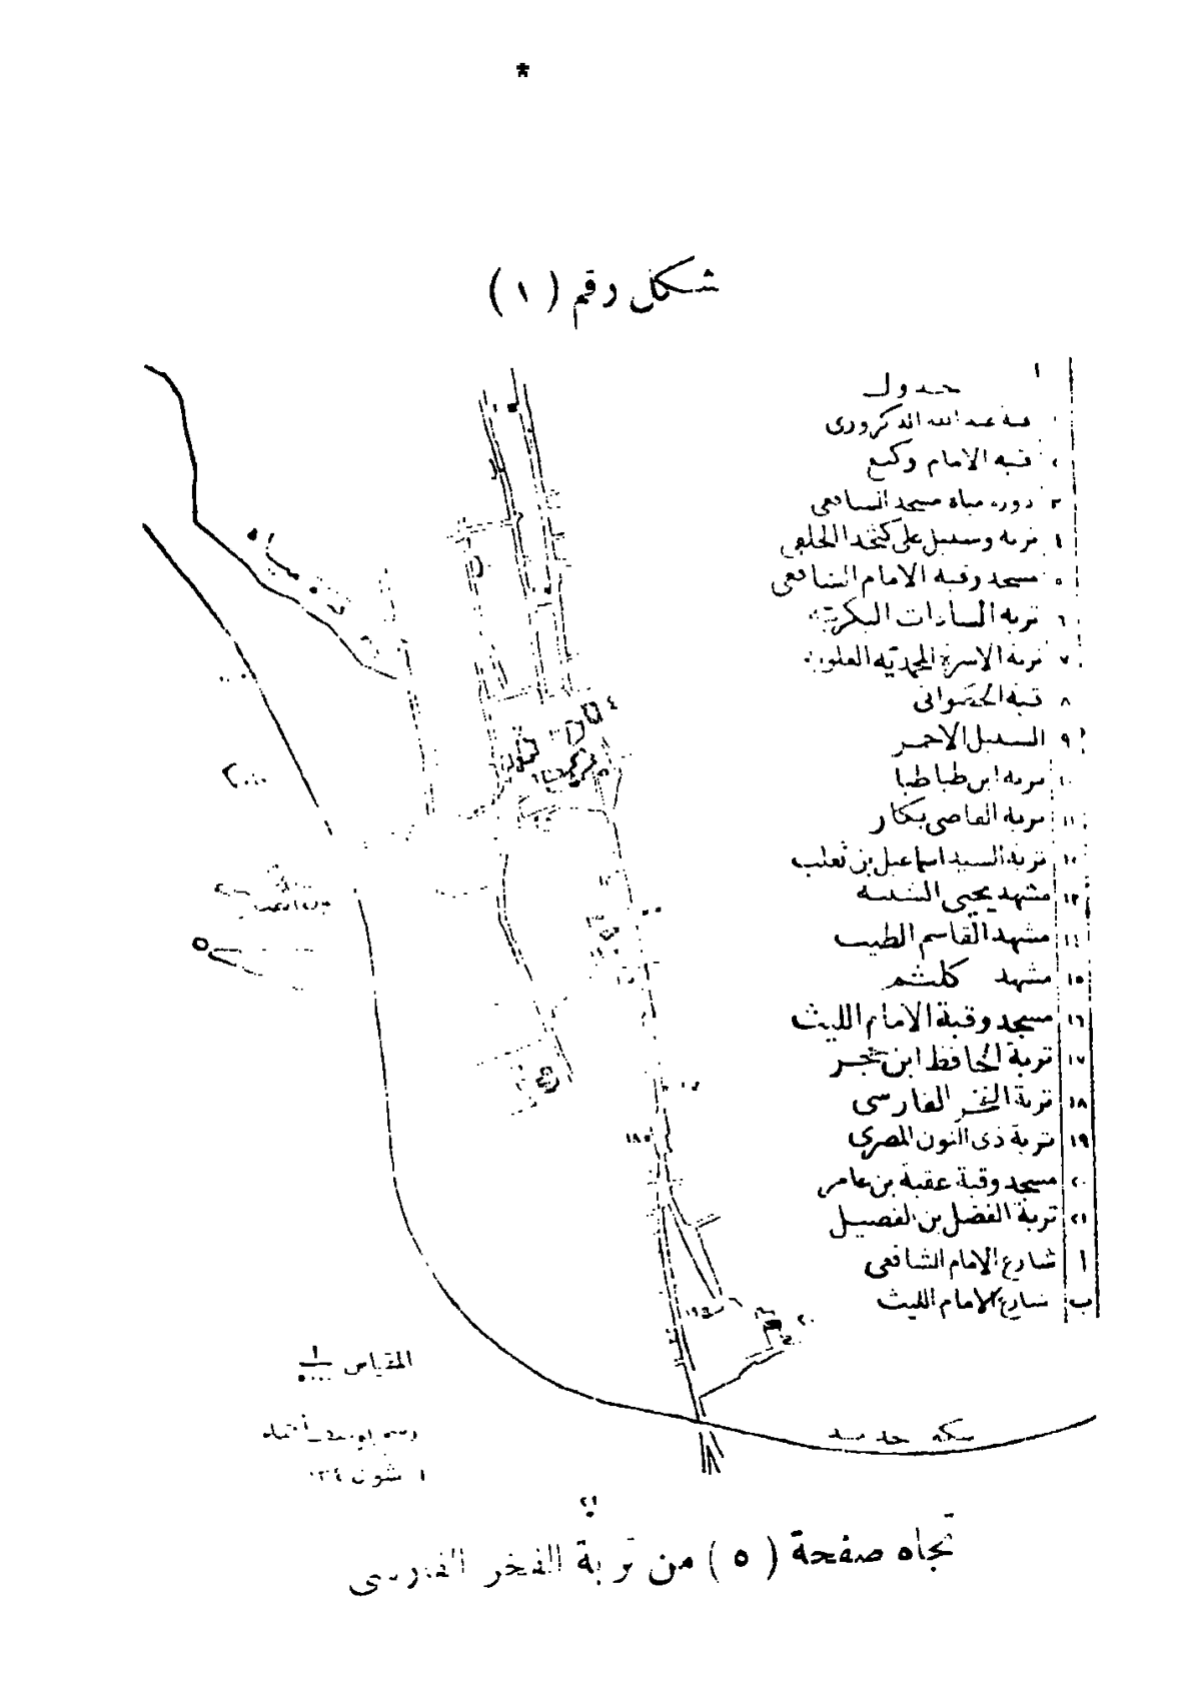 *
شكل رقم (١)
جدول
قبة عبد الله الدكرورى
٢ قبة الامام وكيع
٣ دورة مياه مسجد الشافعى
٤ تربة وسبيل على كتخدا الحلفى
٥ مسجد وقبة الامام الشافعى
٦ تربة السادات البكرية
٧ تربة الاسرة المحمدية العلوية
٨ قبة الحصوانى
٩ السبيل الاحمر
١٠ تربة ابن طباطبا
١١ تربة القاضى بكار
١٢ تربة السيد اسماعيل بن ثعلب
١٣ مشهد يحيى الشبيه
١٤ مشهد القاسم الطيب
١٥ مشهد كلثم
١٦ مسجد وقبة الامام الليث
١٧ تربة الحافظ ابن حجر
١٨ تربة الفخر الفارسى
١٩ تربة ذى النون المصرى
٢٠ مسجد وقبة عقبة بن عامر
٢١ تربة الفضل بن الفصيل
أ شارع الامام الشافعى
ب شارع الامام الليث
٤
١٨
١٩
٢٠
المقياس ١/٥٠٠٠
سكه حديد
رسم يوسف أحمد
٢١
تجاه صفحة (٥) من تربة الفخر الفارسى